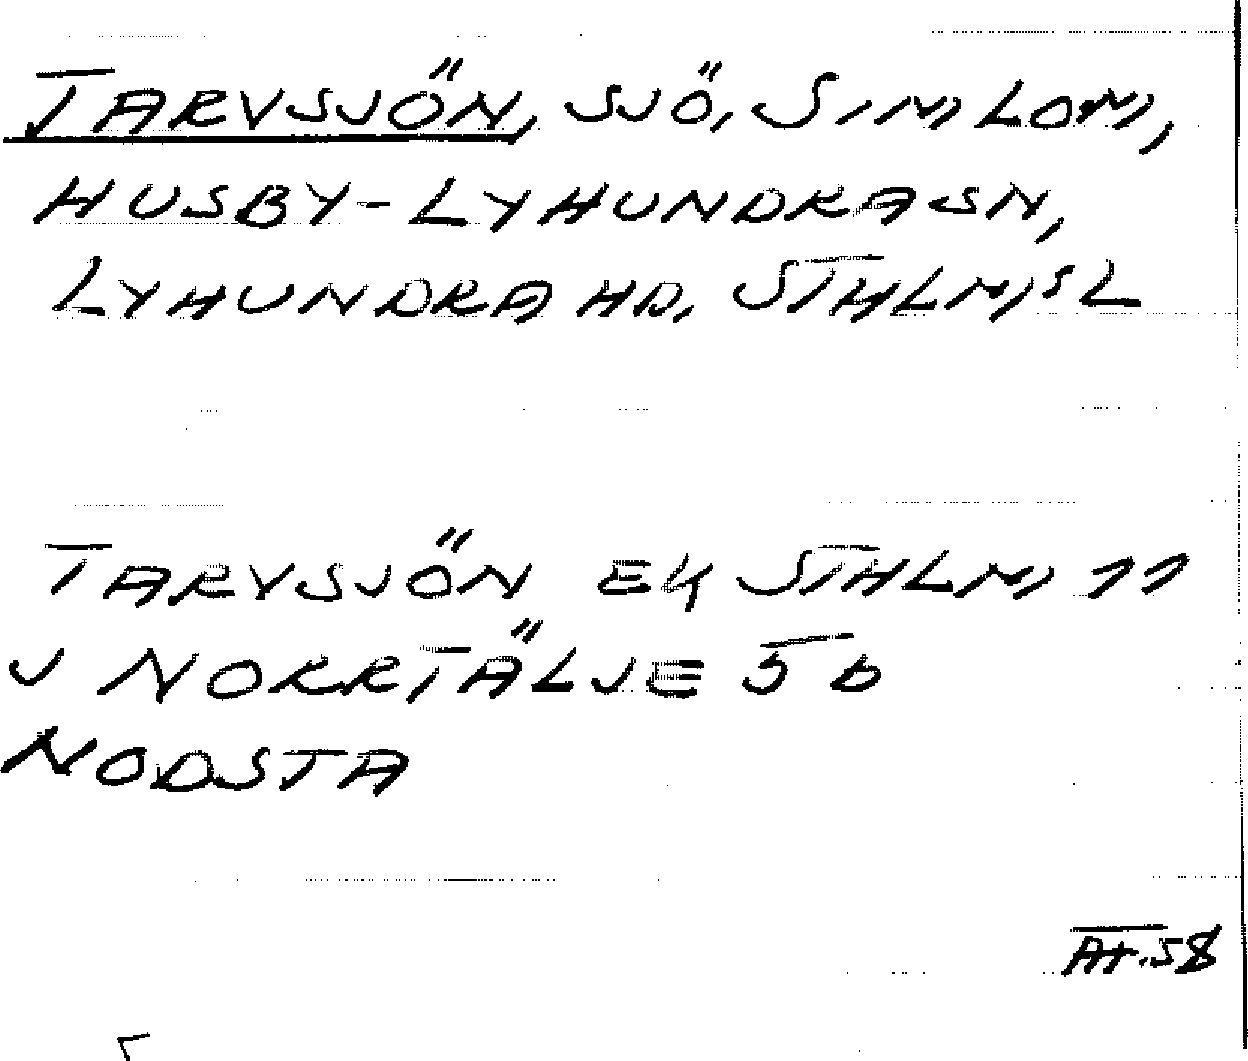 TARVSJÖN, SJÖ, SIMLOM,
HUSBY-LYHUNDRA SN,
LYHUNDRA HD, STHLMS L
TARVSJÖN EK STHLM 11
J NORRTÄLJE 5 b
NODSTA